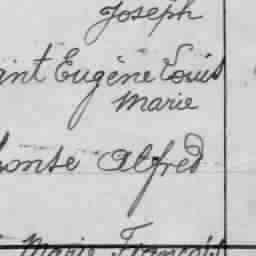 Joseph
ant Eugène Louis
Marie
honse Alfred
Marie François